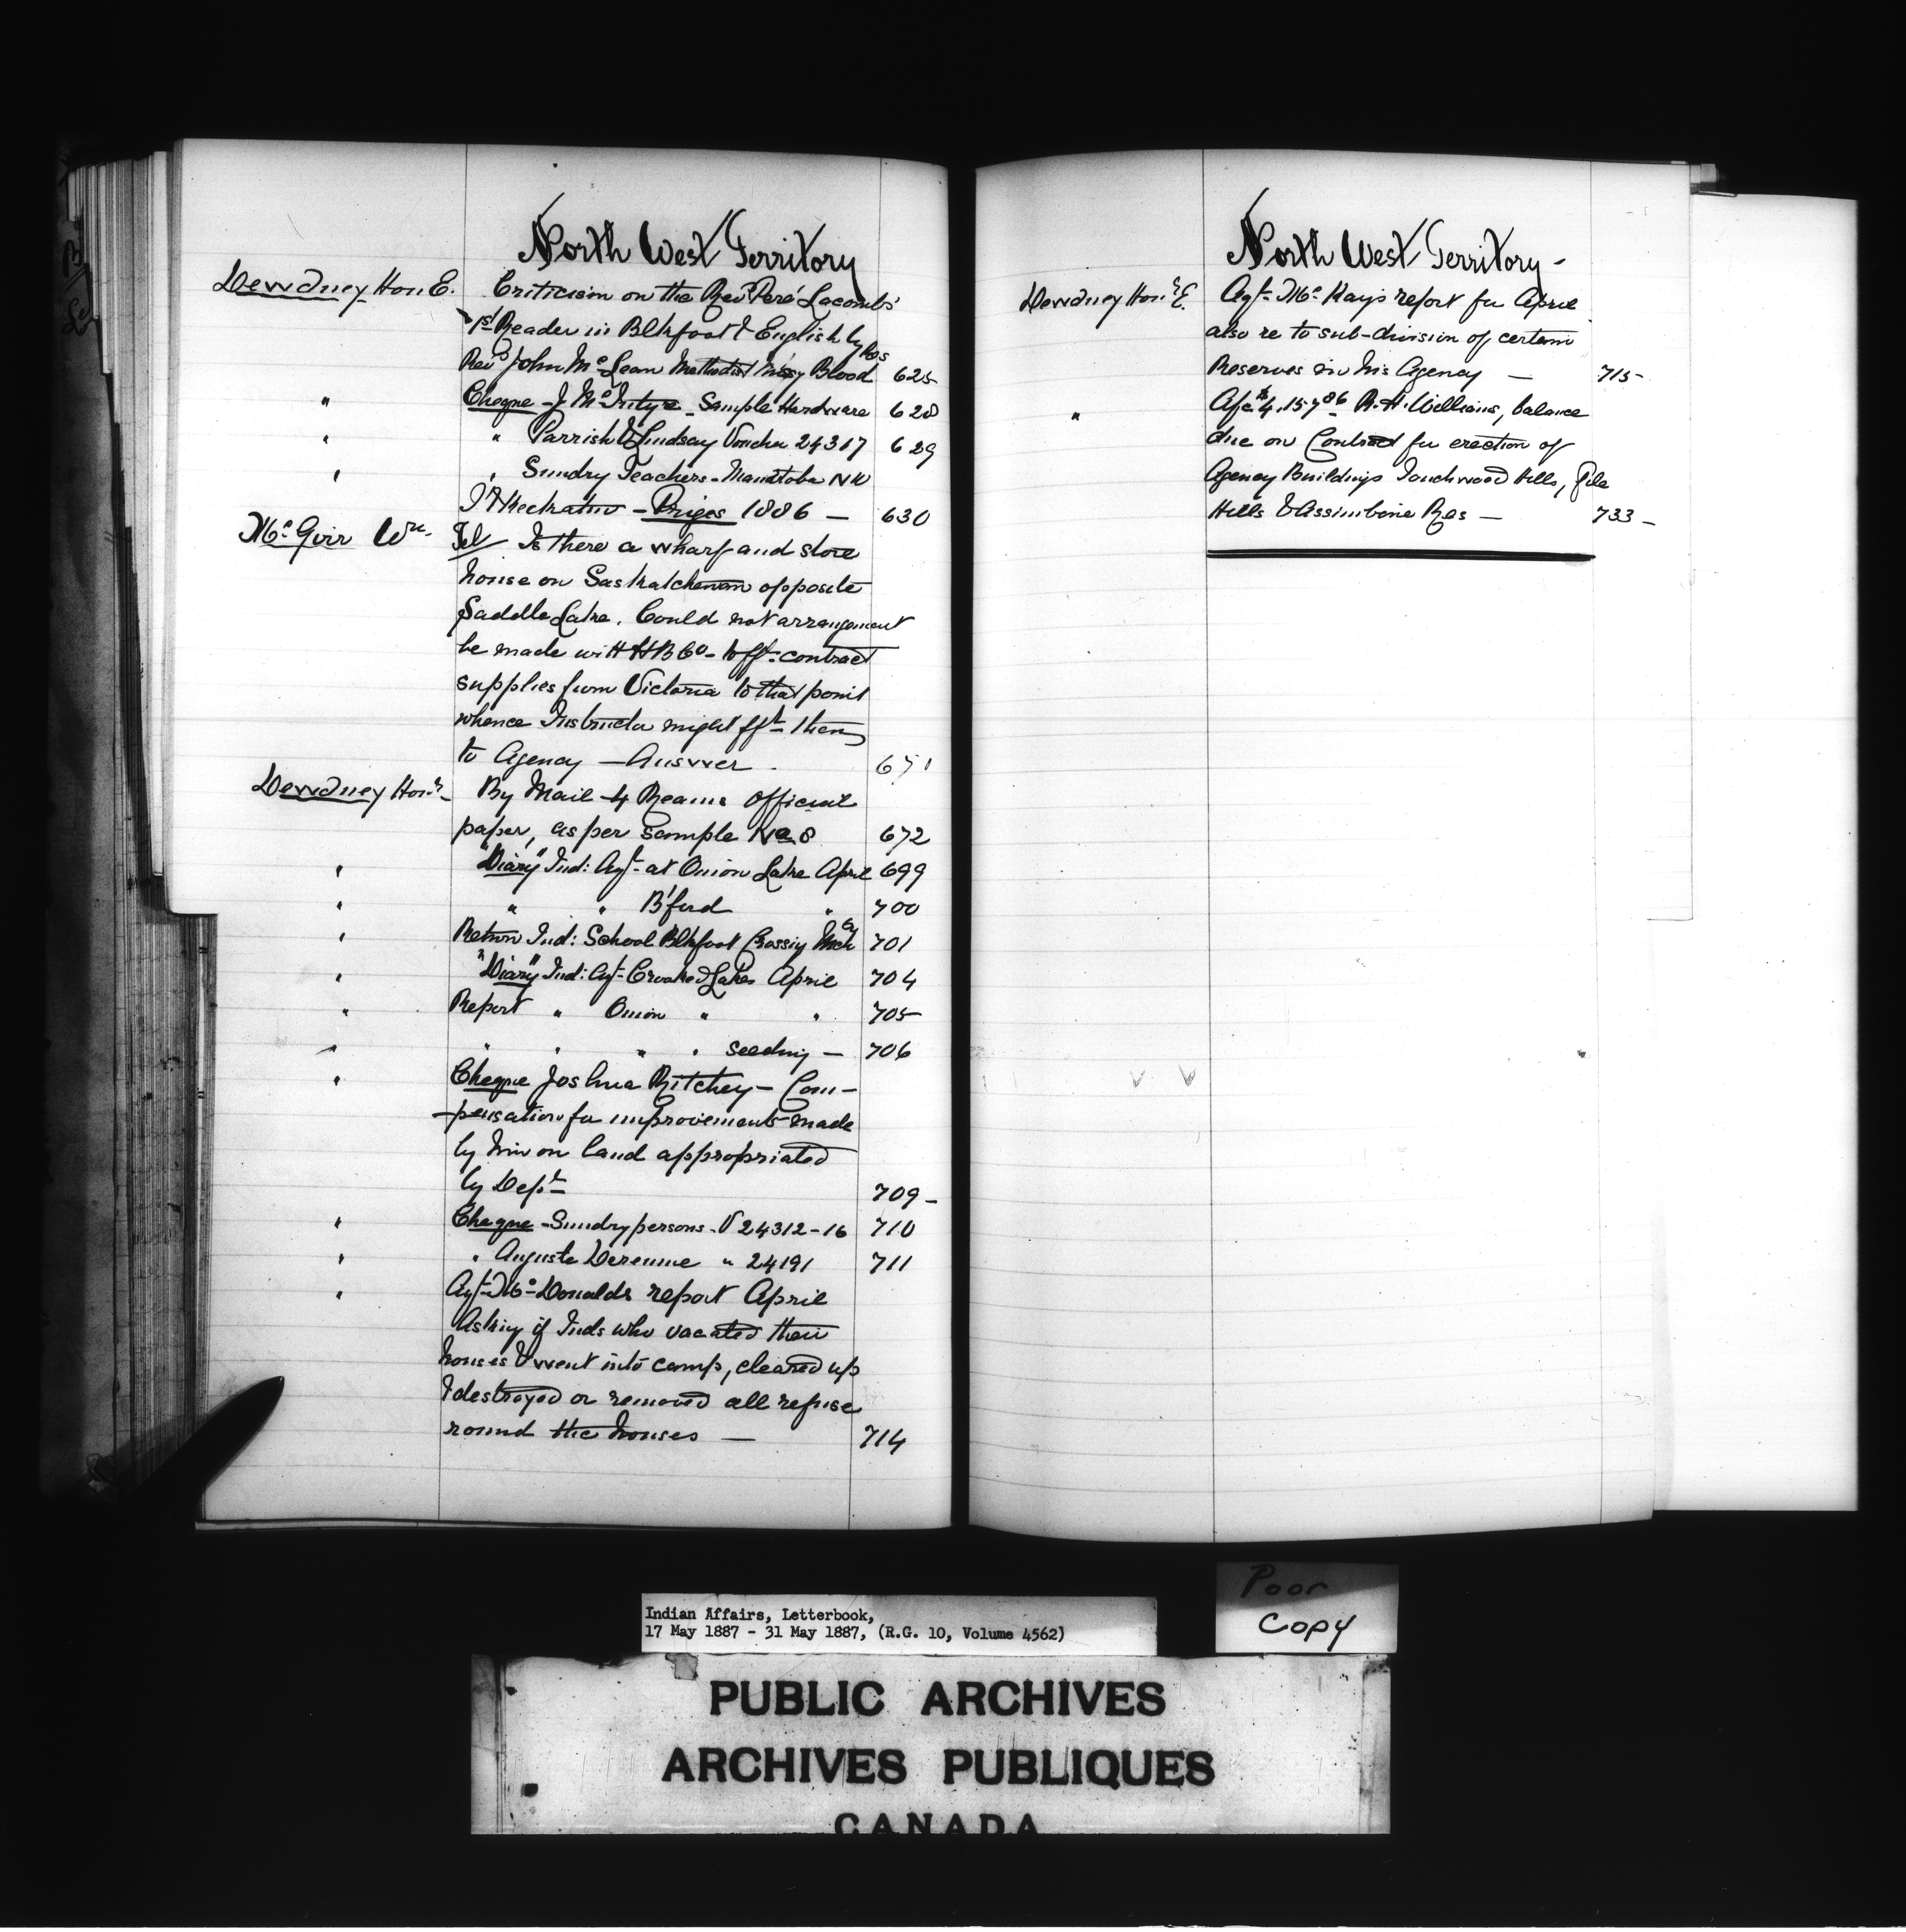 North West Territory
Dewdney Hon E. Criticism on the Revd Père Lacombs'
1st Reader in Blkfoot & English by
Revd John McLean Methodist Missy Blood Res 625
" Cheque - J McIntyre - Sample Hardware 628
" " Parrish & Lindsay Voucher 24317 629
" " Sundry Teachers - Manitoba NW
- Prizes 1886 — 630
McGirr Wm. Tel Is there a wharf and store
house on Saskatchewan opposite
Saddle Lake. Could not arrangement
be made with HBCo - to ff. contract
supplies from Victoria to that point
whence Instructor might ffd them
to Agency — Answer - 671
Dewdney Honr - By Mail - 4 Reams official
paper, as per sample No 8 672
" "Diary" Ind: Agt - at Onion Lake April 699
" " " B'ford " 700
" Return Ind: School Blkfoot Crossing Mch 701
" "Diary" Ind: Agt - Crooked Lakes April 704
" Report " Onion " " 705
" " " " " seeding — 706
" Cheque Joshua Ritchey - Com-
-pensation for improvements made
by him on land appropriated
by Dept 709 -
" Cheque - Sundry persons - V 24312-16 710
" " Auguste Derenne " 24191 711
" Agt - McDonalds report April
Asking if Inds who vacated their
houses & went into camp, cleared up
& destroyed or removed all refuse
round the houses — 714
North West Territory -
Dewdney Honr E. Agt - McKays report for April
also re to sub-division of certain
Reserves in his Agency — 715
" R. H. Williams, balance
due on Contract for erection of
Agency Buildings Touchwood Hills, File
Hills & Assiniboine Res — 733 -
Poor
Copy
Indian Affairs, Letterbook,
17 May 1887 - 31 May 1887, (R.G. 10, Volume 4562)
PUBLIC ARCHIVES
ARCHIVES PUBLIQUES
CANADA